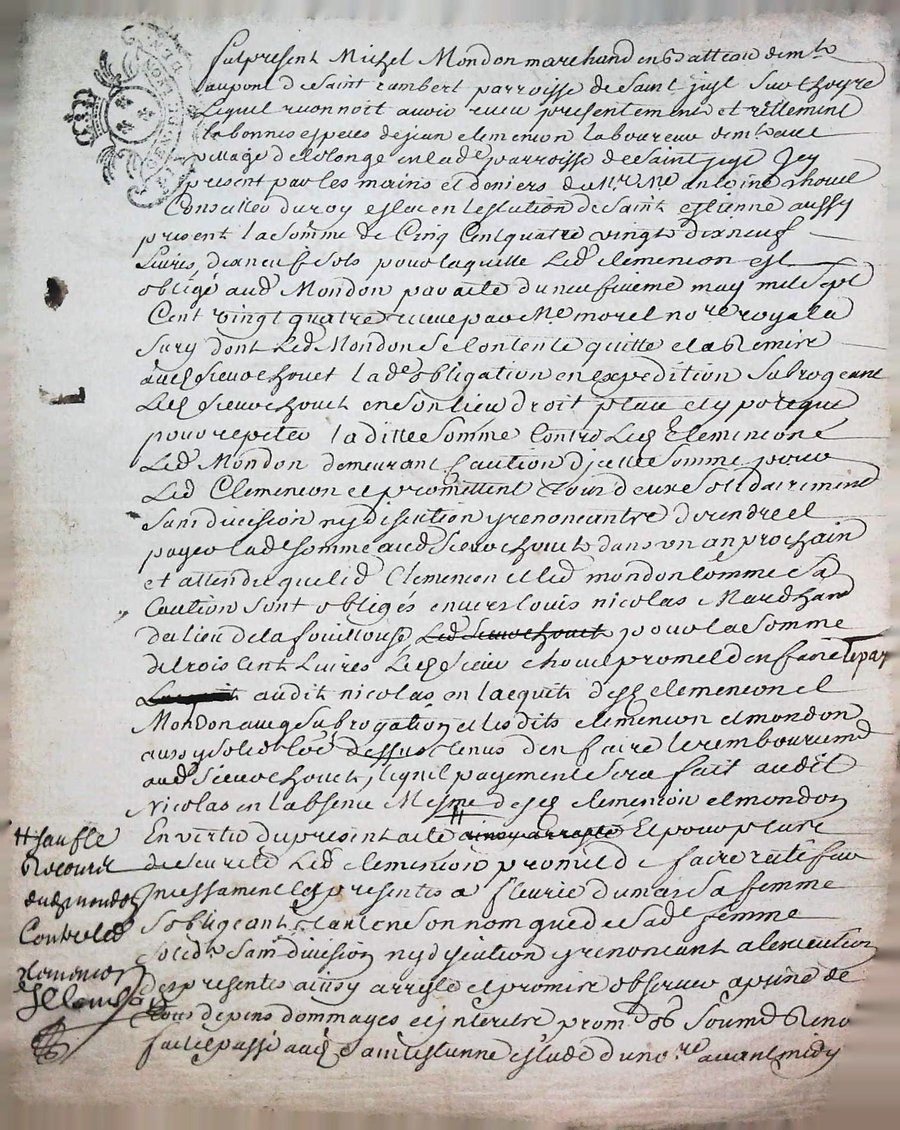 fut present Michel Mondon marchand en batteau dem.t
au pont de Saint rambert parroisse de Saint just Sur Choyre
Lequel reconnoit avoir receu presentement et réellement
en bonnes especes de jean clemencon laboureur dem.t au
village de Lolonge en lad.e parroisse de Saint just Jcy
present par les mains et deniers de M.re M.e antoine Chouel
Conseiller du roy eslu en Leslution de Saint estienne aussy
present la Somme de Cinq Cent quatre vingts dixneuf
Livres, dixneuf Sols pour laquelle Led. Clemencon est
obligé aud. Mondon par acte du neufvieme may mil Sept
Cent vingt quatre receue par M.e morel no.re royal a
Sury dont Led. Mondon Se Contente quitte et a remis
aud. Sieur Chouet lad.e obligation en expedition Subrogeant
Led. Sieur Chouet en Son lieu droit place et ypoteque
pour repeter laditte Somme Contre Led. Clemencon
Led. Mondon demeurant Caution d'jcelle Somme pour
Led. Clemencon et promettent tous deux Solidairement
Sans division ny discution y renoncant de rendre et
payer lad. Somme aud. Sieur Chouet dans un an prochain
et attendu que led. Clemencon et led. mondon Comme Sa
Caution Sont obligés envers louis nicolas Marchand
du lieu de la fouillouse Led. Sieur Chouet pour la Somme
de trois Cent Livres Led. Sieur Chouet promet d'en faire le pay
audit nicolas en l'acquit desd. Clemencon et
Mondon avec Subrogation et lesdits Clemencon et mondon
aussy Solid. Comme dessus tenus d'en faire le remboursem.t
aud. Sieur Chouet, lequel payement Sera fait audit
Nicolas en l'absence Mesme desd. Clemencon et mondon
En vertu du present acte ainsy arresté Et pour plus
de Seureté Led. Clemencon promet de faire ratefier
jncessament les presentes a fleurie dumas Sa femme
S'obligeant tant en Son nom que de Sad. femme
Solid.t Sans division ny discution y renoncant a l'execution
des presentes ainsy arresté et promis observer a peine de
tous depens dommages et jnterets prom. ob. Soum. Reno
fait et passé aud. Saint estienne estude du no.re avant midy
# Sauf le
Recours
dud. mondon
Contre led.
clemencon